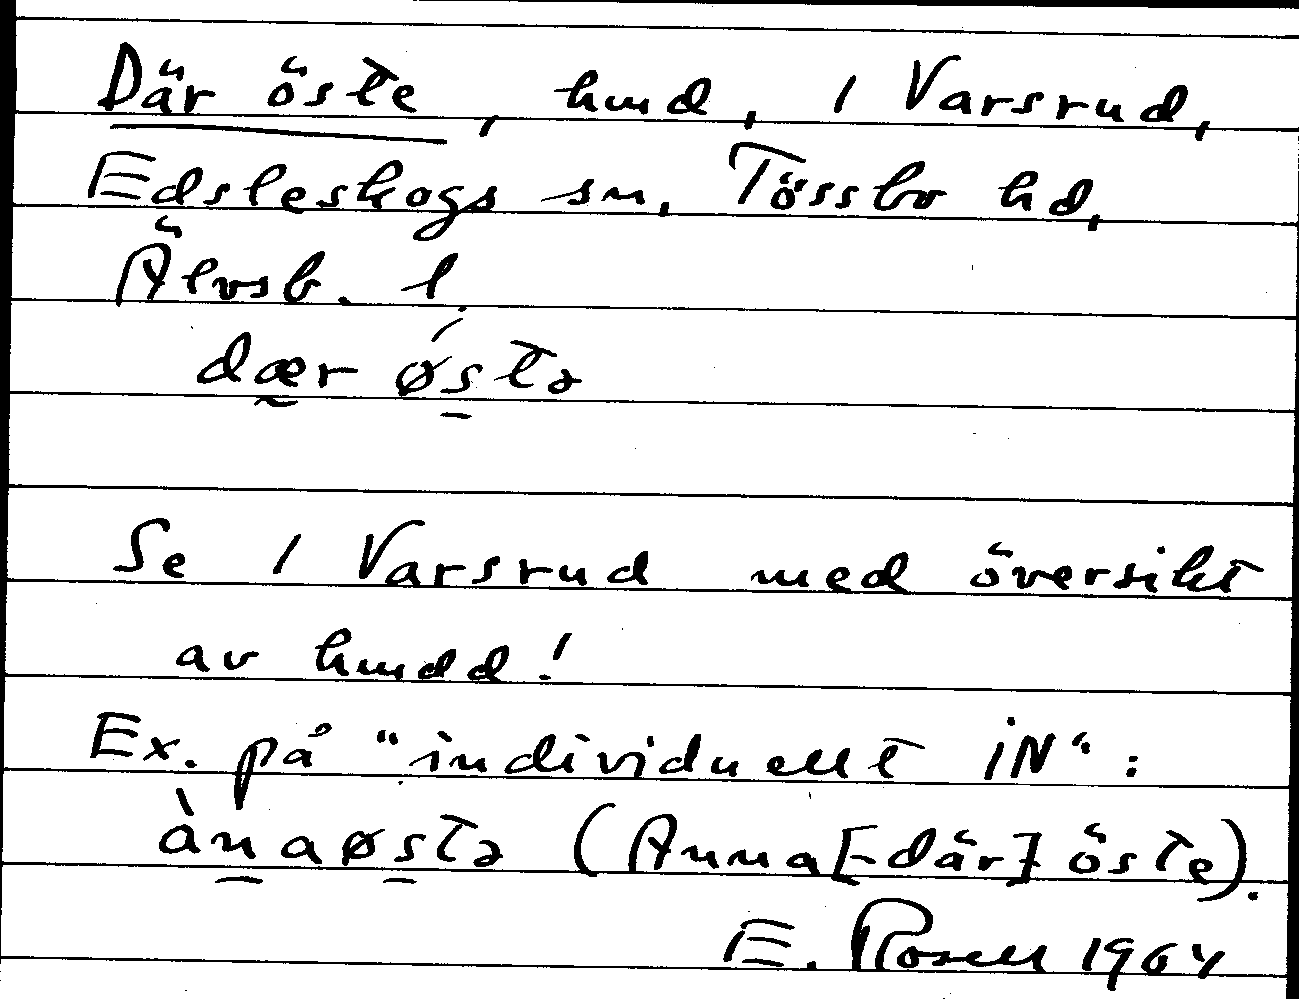 Där öste, hmd, 1 Varsrud,
Edsleskogs sn, Tössbo hd,
Älvsb. l.
dær ǿstə
Se 1 Varsrud med översikt
av hmdd!
Ex. på "individuellt iN":
ànaøstə (Anna[-där] öste).
E. Rosell 1964